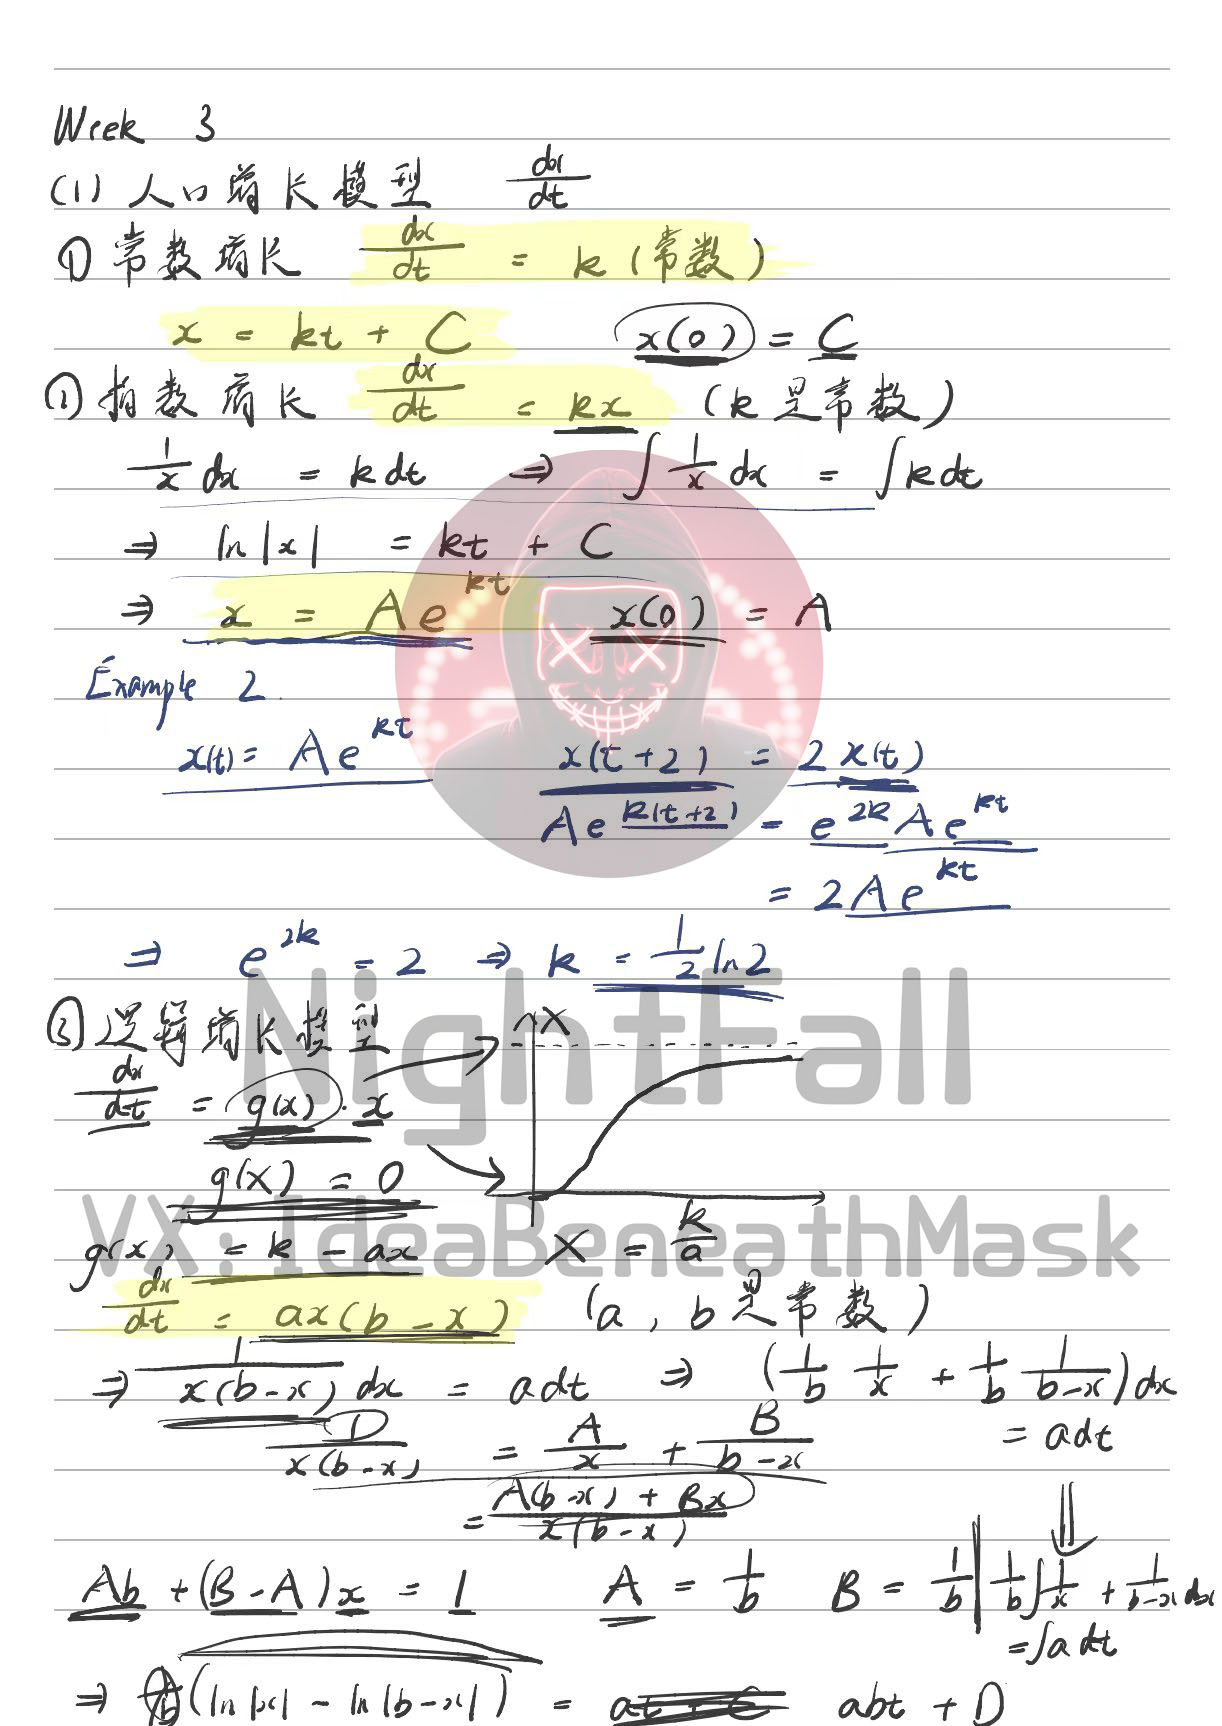 Week 3
(1) 人口增长模型 dx/dt
① 常数增长 dx/dt = k (常数)
x = kt + C x(0) = C
① 指数增长 dx/dt = kx (k是常数)
1/x dx = k dt ⇒ ∫ 1/x dx = ∫ k dt
⇒ ln|x| = kt + C
⇒ x = Ae^kt x(0) = A
Example 2.
x(t) = Ae^kt x(t+2) = 2x(t)
Ae^k(t+2) = e^2k Ae^kt
= 2Ae^kt
⇒ e^2k = 2 ⇒ k = 1/2 ln2
③ 逻辑增长模型 X
dx/dt = g(x)·x
g(X) = 0
g(x) = k - ax X = k/a
dx/dt = ax(b-x) (a, b是常数)
⇒ 1/x(b-x) dx = a dt ⇒ (1/b 1/x + 1/b 1/b-x) dx
= a dt
D/x(b-x) = A/x + B/b-x
= A(b-x) + Bx / x(b-x)
Ab + (B-A)x = 1 A = 1/b B = 1/b | 1/b ∫ 1/x + 1/b-x dx
= ∫ a dt
⇒ (ln|x| - ln|b-x|) = abt + D
NightFall
VX: IdeaBeneathMask